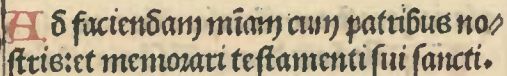 Ad faciendam mīam cum patribus no⸗
stris: et memorari testamenti sui sancti.